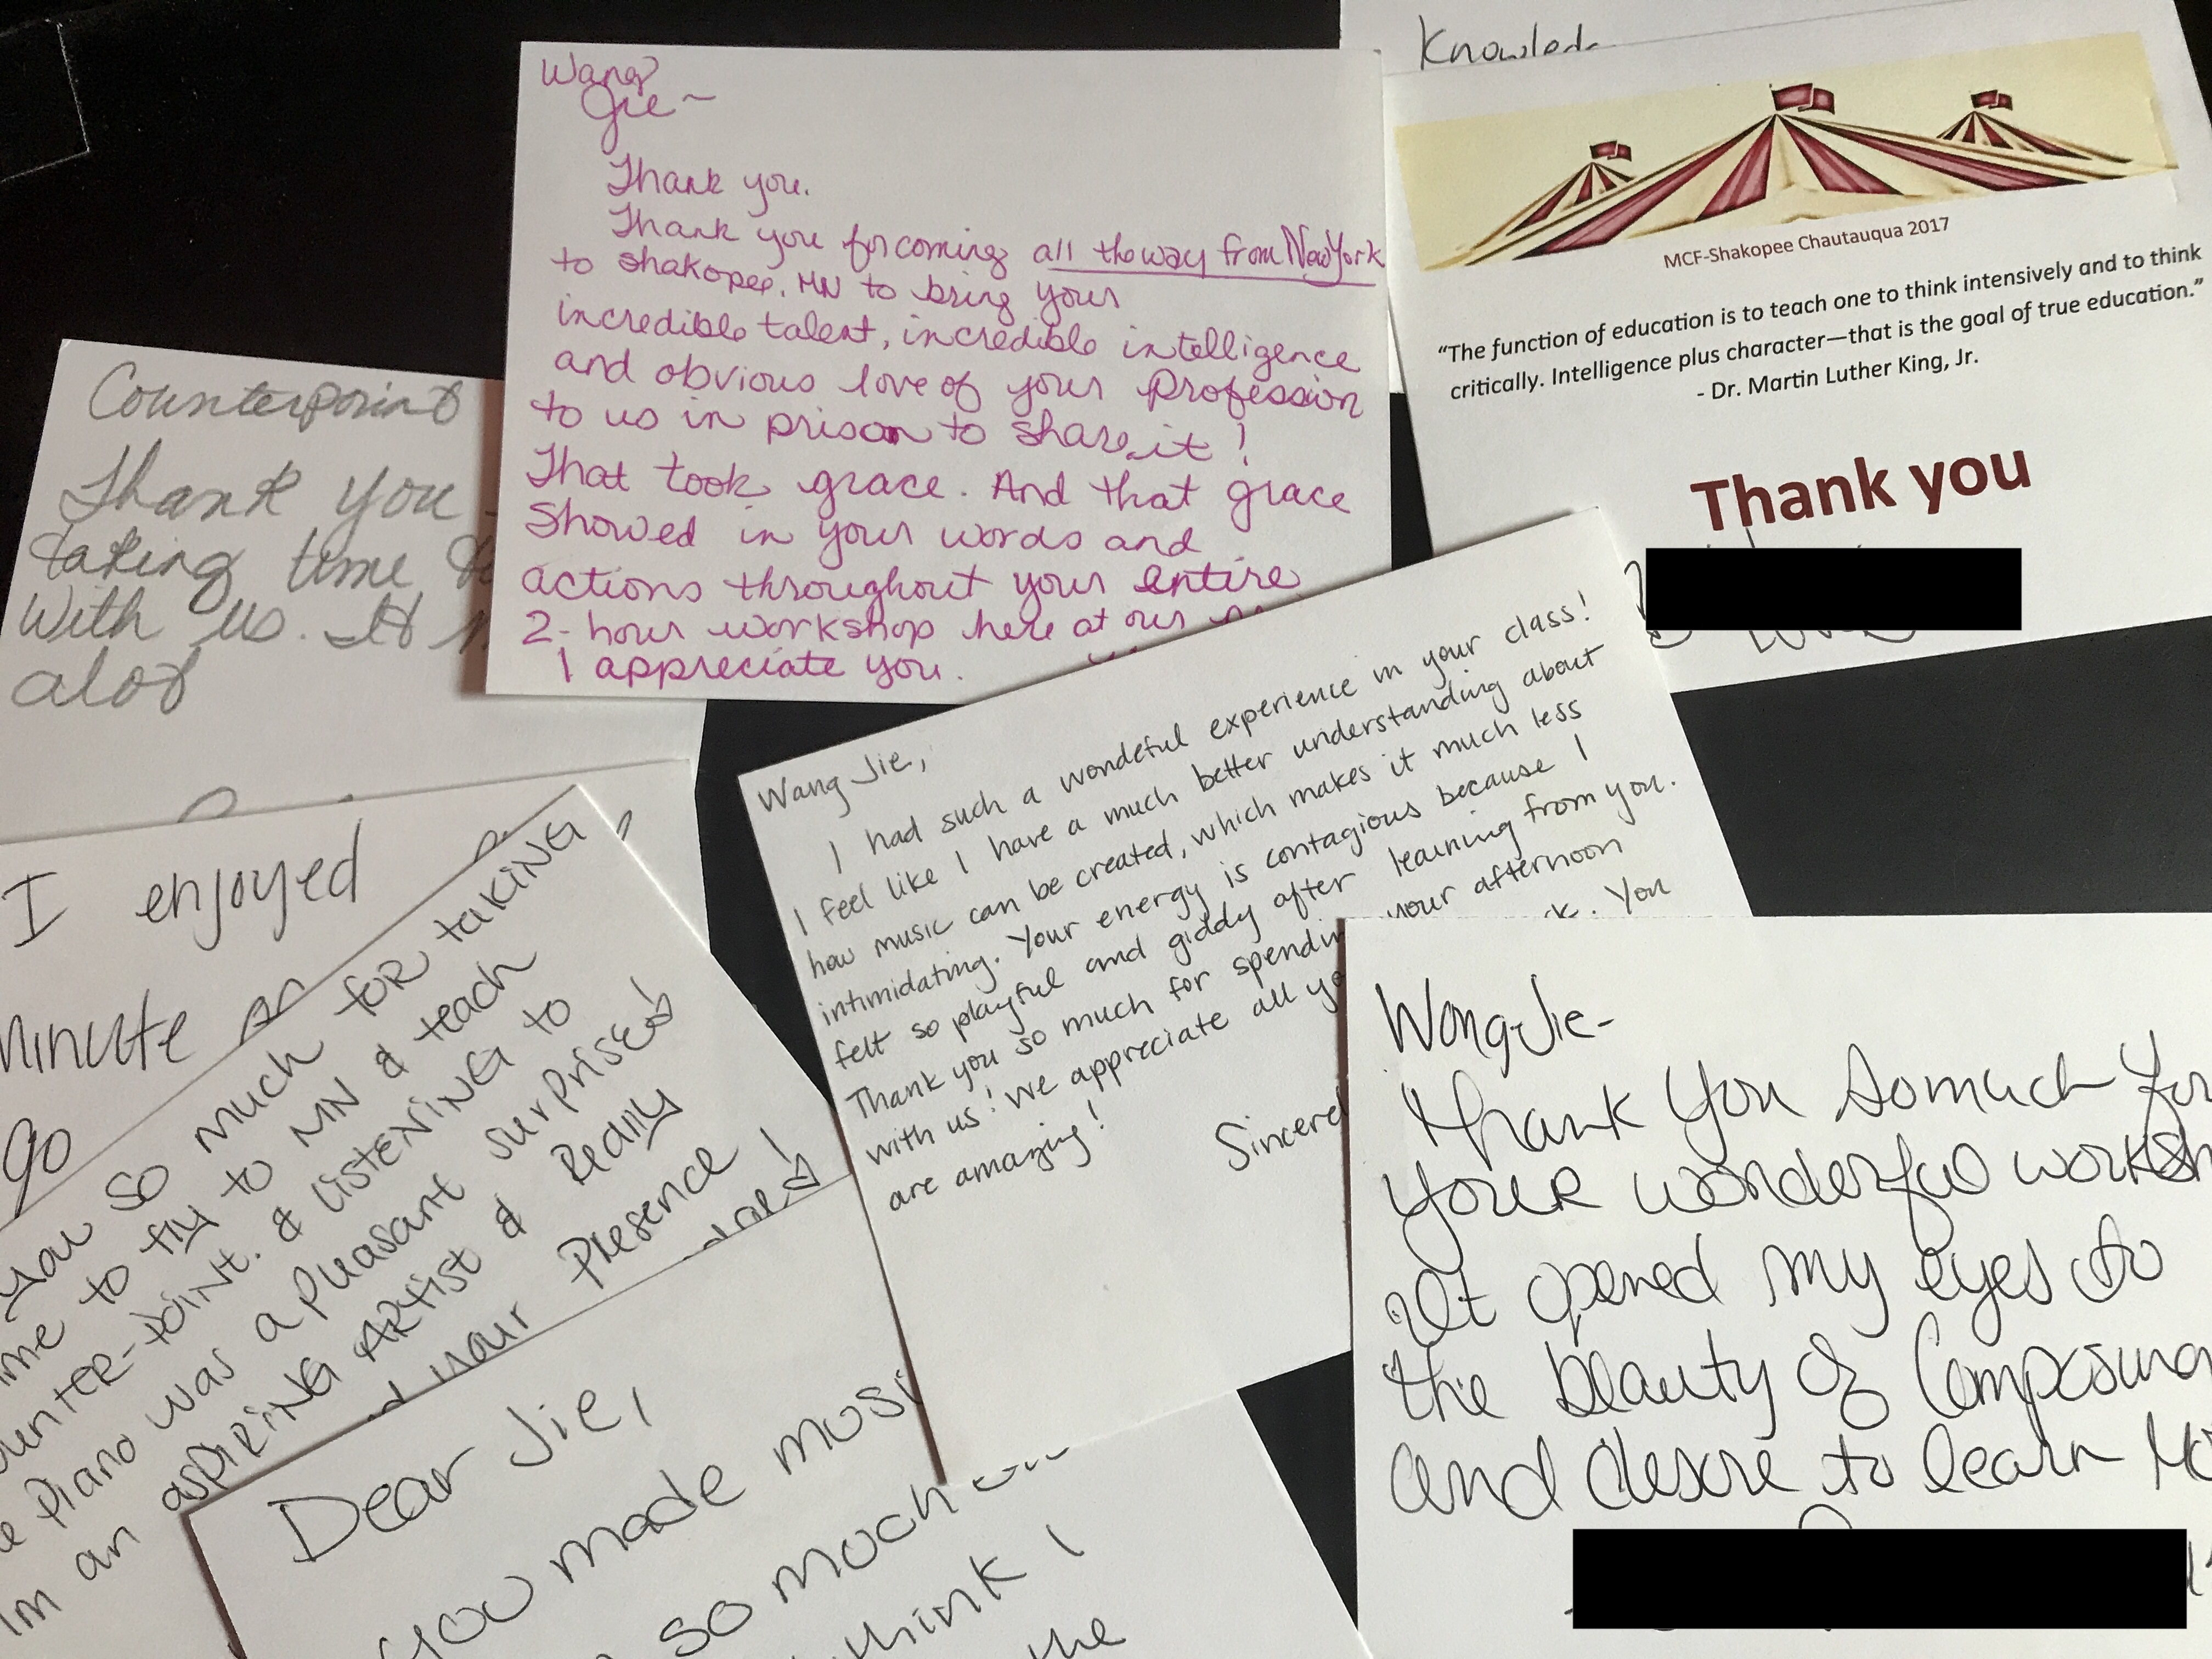 Wang
Jie~
Thank you.
Thank you for coming all the way from New York
to shakopee, MN to bring your
incredible talent, incredible intelligence
and obvious love of your profession
to us in prison to share it!
That took grace. And that grace
showed in your words and
actions throughout your entire
2-hour workshop here at our
I appreciate you.
MCF-Shakopee Chautauqua 2017
“The function of education is to teach one to think intensively and to think
critically. Intelligence plus character—that is the goal of true education.”
- Dr. Martin Luther King, Jr.
Thank you
Counterpoint
Thank you
taking time
with us. It
alot
Wang Jie,
I had such a wondeful experience in your class!
I feel like I have a much better understanding about
how music can be created, which makes it much less
intimidating. Your energy is contagious because I
felt so playful and giddy after learning from you.
Thank you so much for spending your afternoon
with us! We appreciate all You
are amazing!
I enjoyed
minute
go
you so much for taking
to fly to MN & teach
& listening to
Piano was a pleasant surprise!
Im an aspiring artist & Really
your Presence!
Dear Jie,
you made
so much
think I
the
Wong Jie-
Thank you so much for
your wonderful
It opened my eyes to
the beauty of Composing
and desire to learn